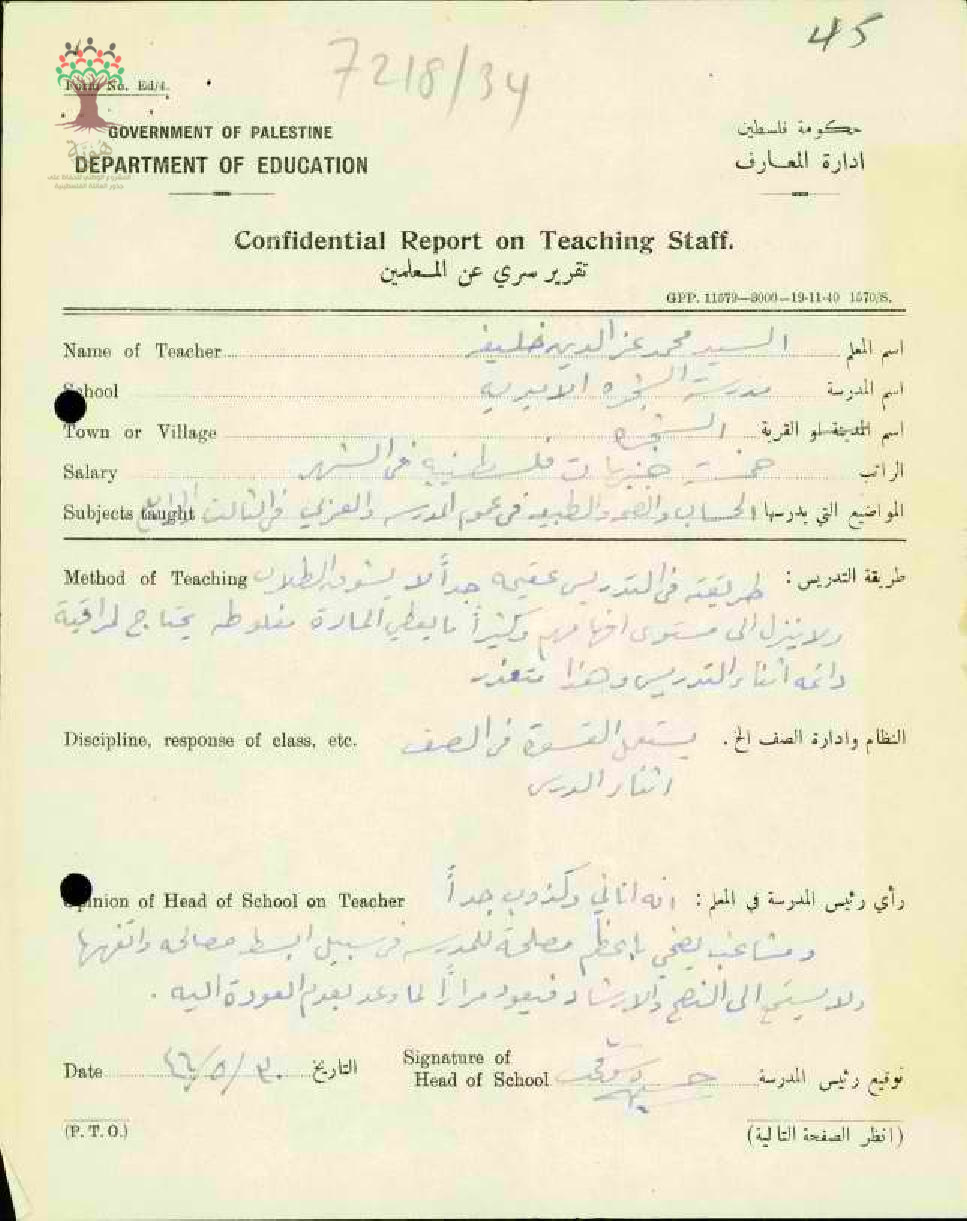 45
7218/34
Form No. Ed/4.
GOVERNMENT OF PALESTINE
حكومة فلسطين
DEPARTMENT OF EDUCATION
ادارة المعارف
هوية
المشروع الوطني للحفاظ على
جذور العائلة الفلسطينية
Confidential Report on Teaching Staff.
تقرير سري عن المعلمين
GPP. 11579—3000—19-11-40 1570/S.
Name of Teacher السيد محمد عز الدين خليفه اسم المعلم
School مدرسة الشجره الاميرية اسم المدرسة
Town or Village الشجره اسم المدينة او القرية
Salary خمسة جنيهات فلسطينية في الشهر الراتب
Subjects taught الحساب والصحه والطبيعه في عموم المدرسه والعربي في الثالث الرابع المواضيع التي يدرسها
Method of Teaching طريقة التدريس: طريقته في التدريس عقيمه جداً لا يشوق الطلاب
ولا ينزل الى مستوى افهامهم وكثيراً ما يعطي المادة مغلوطه يحتاج لمراقبة
دائمه اثناء التدريس وهذا متعذر
Discipline, response of class, etc. النظام وادارة الصف الخ. يستعمل القسوة في الصف
اثناء الدرس
Opinion of Head of School on Teacher رأي رئيس المدرسة في المعلم: انه اناني وكذوب جداً
ومشاغب يضحي باعظم مصلحة للمدرسه في سبيل ابسط مصالحه واتفهها
ولا يستمع الى النصح والارشاد فيعود مراراً لما وعد بعدم العودة اليه.
Date ٣٠/٥/٤٦ التاريخ Signature of
Head of School توقيع رئيس المدرسة
(P. T. O.) (انظر الصفحة التالية)